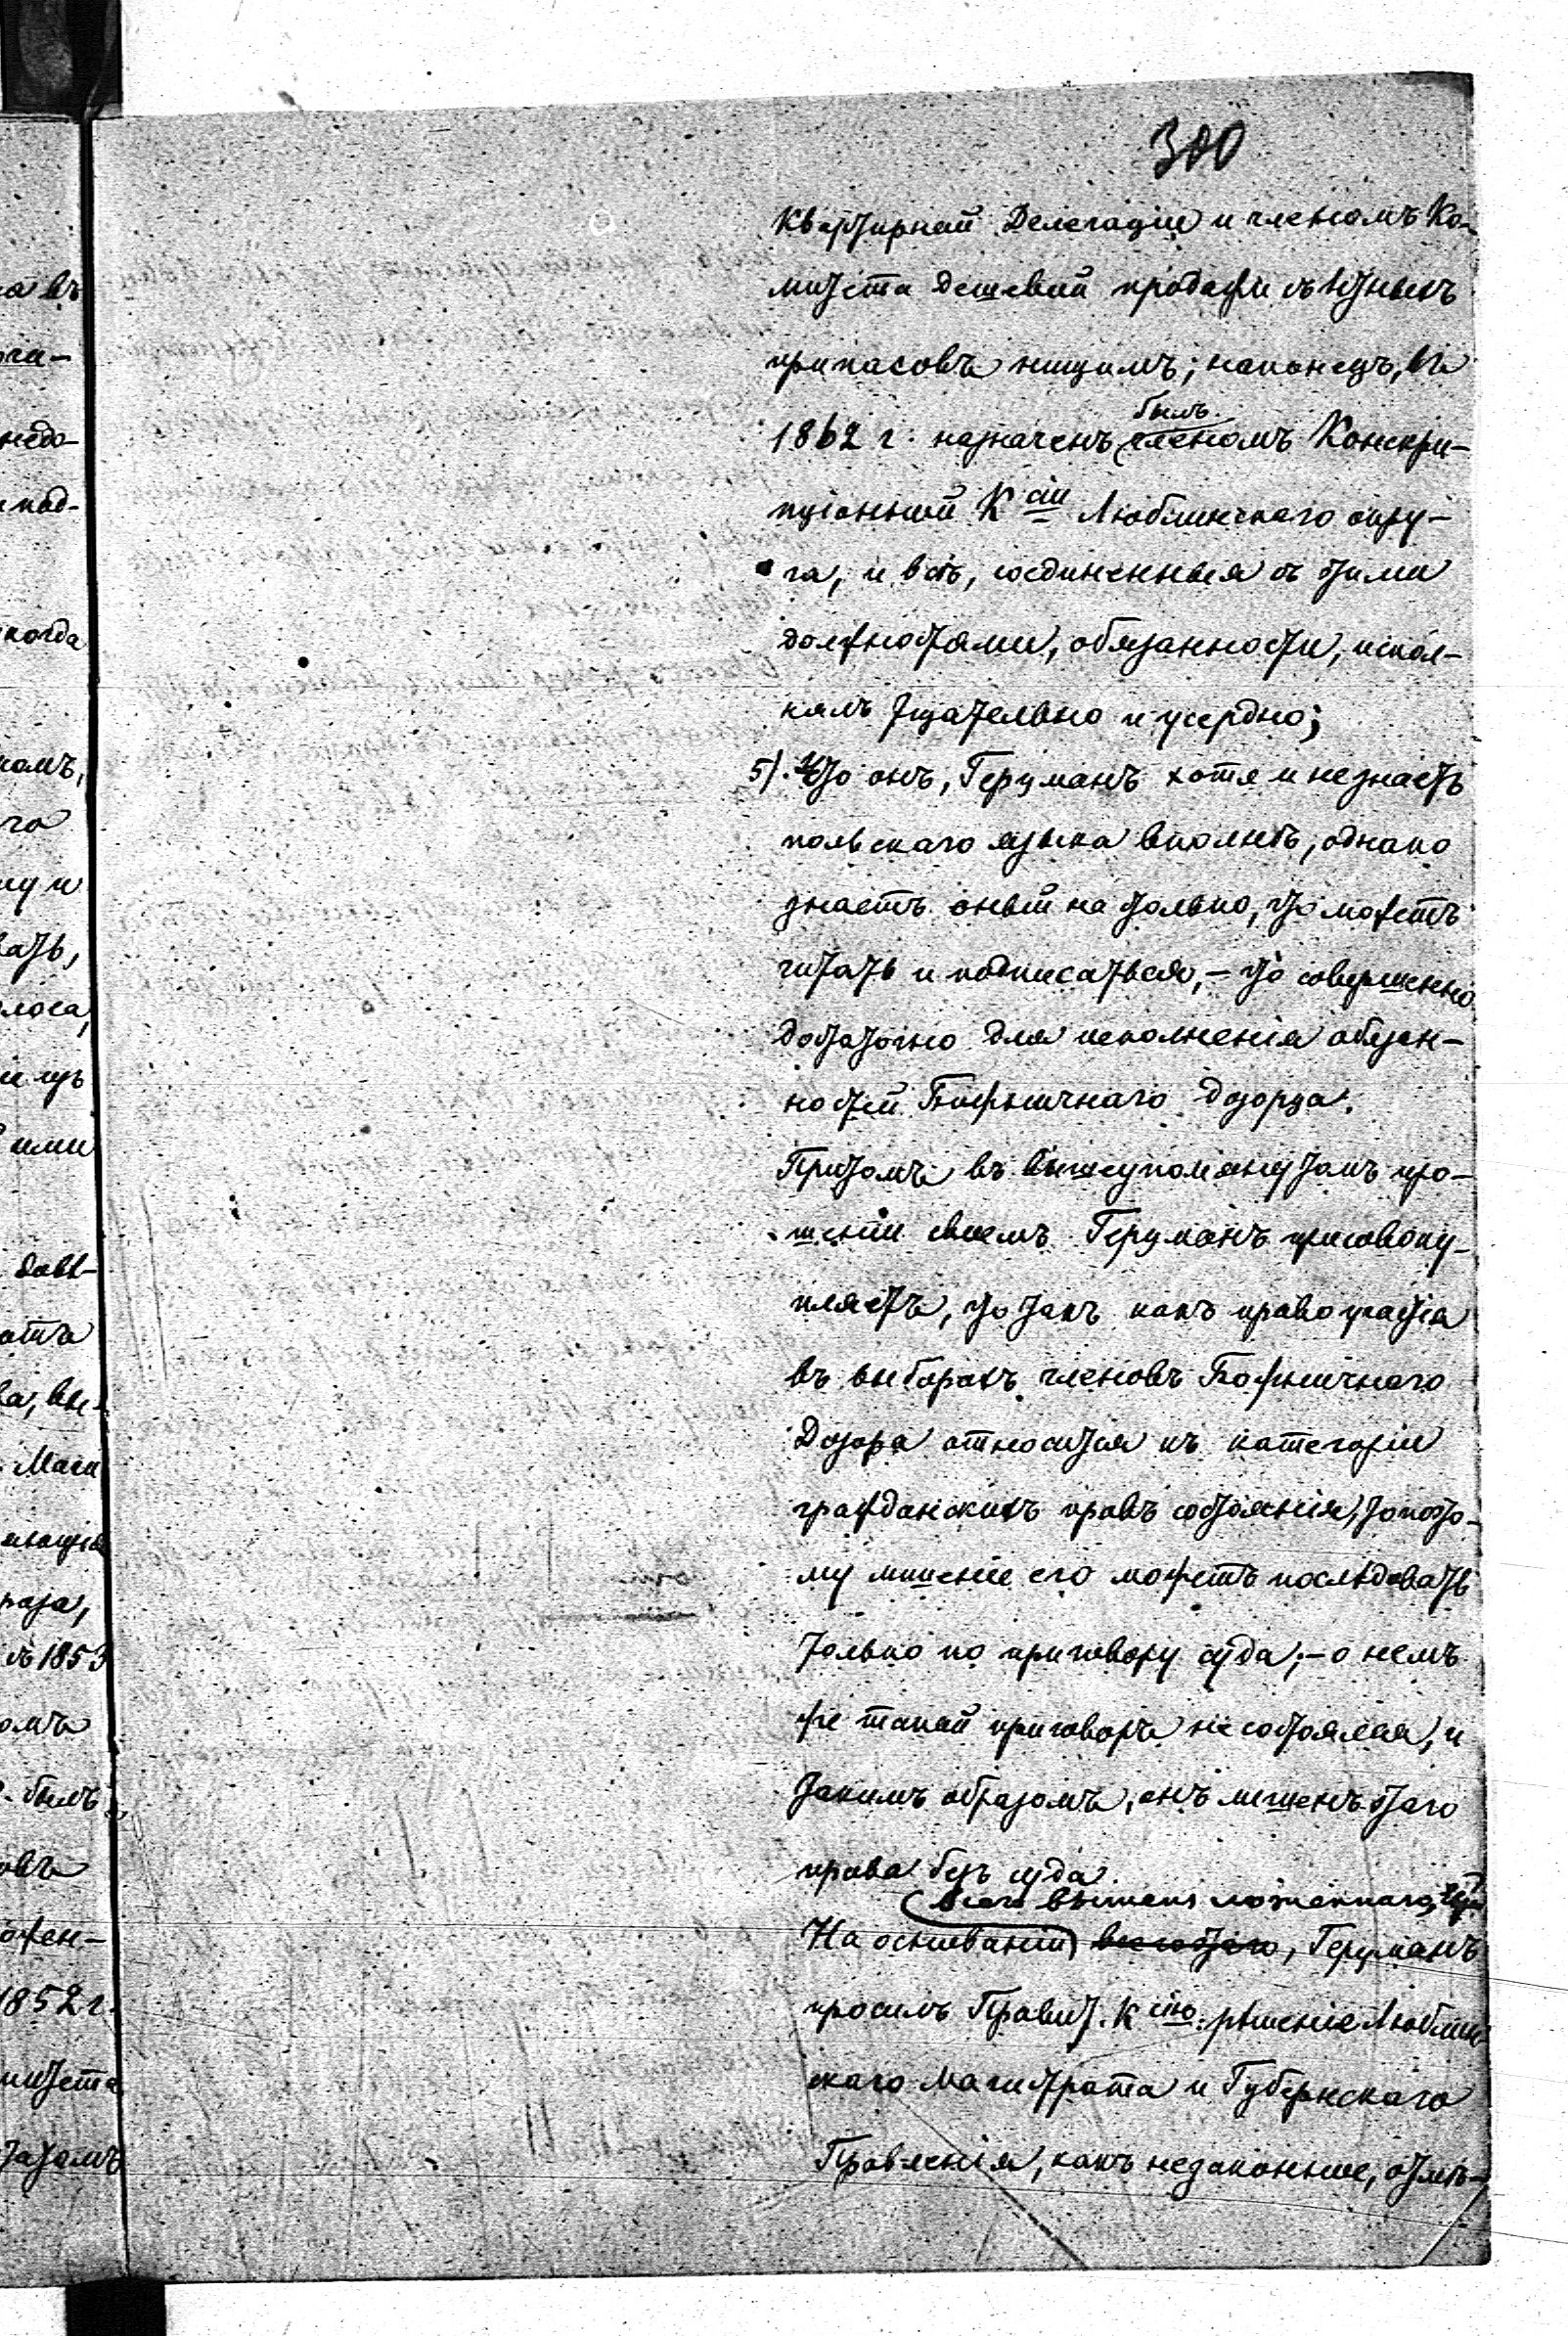 300
Квартирной Делегаціи и членомъ Ко-
митета дешевой продажи съѣстныхъ
припасовъ нищимъ; наконецъ, въ
былъ
1862 г. назначенъ членомъ Конскри-
пціонной Ксіи Люблинскаго окру-
га, и всѣ, соединенныя съ этими
должностями, обязанности, испол-
нялъ тщательно и усердно;
5). Что онъ, Герцманъ хотя и не знаетъ
польскаго языка вполнѣ, однако
знаетъ оный на столько, что можетъ
читать и подписаться, – что совершенно
достаточно для исполненія обязан-
ностей Божничнаго дозорца.
Притомъ въ вышеупомянутомъ про-
шеніи своемъ Герцманъ присовоку-
пляетъ, что такъ какъ право участія
въ выборахъ членовъ Божничнаго
Дозора относится къ категоріи
гражданскихъ правъ состоянія, то пото-
му лишеніе его можетъ послѣдовать
только по приговору суда; – о немъ
же такой приговоръ не состоялся, и
такимъ образомъ, онъ лишенъ этаго
права безъ суда.
всего вышеизложеннаго,
На основаніи всего этаго, Герцманъ
просилъ Правит. Ксію. рѣшеніе Люблин
скаго Магистрата и Губернскаго
Правленія, какъ незаконные, отмѣ-
а въ
недо-
когда
ими
съ 1853
омъ
былъ
овъ
1852 г.
митета